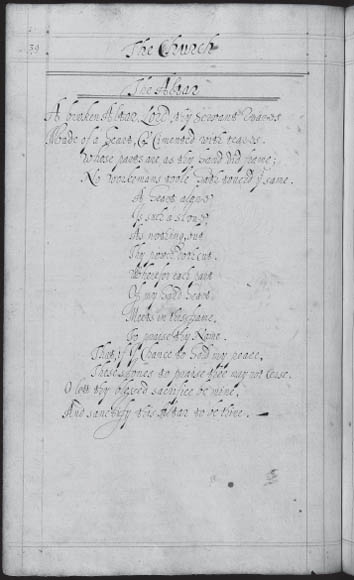 39
The Church
The Altar
A broken Altar, Lord, thy Servant reares
Made of a heart, & cimented with teares.
Whose parts are as thy hand did frame;
No workemans toole hath touch'd yᵉ same.
A heart alone
Is such a stone
As nothing, but
Thy power doth cut.
Wherefor each part
Of my hard heart
Meets in this frame,
To praise thy Name.
That, if I chance to hold my peace,
These stones to praise thee may not cease.
O lett thy blessed sacrifice be mine,
And sanctify this Altar to be thine.